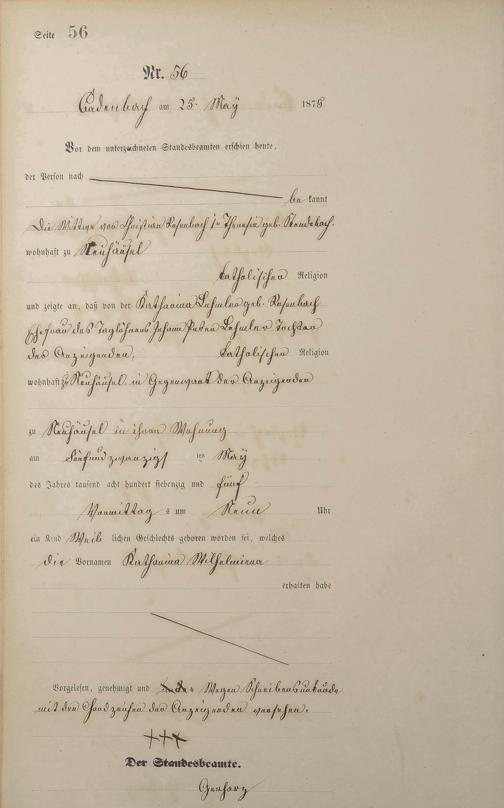 Seite 56
Nr. 56
Cadenbach am 25. May 1875
Vor dem unterzeichneten Standesbeamten erschien heute,
der Person nach
be kannt
Die Wittwe von Christian Rosenbach Theresia geb.
wohnhaft zu Neuhäusel
katholischer Religion
und zeigte an, daß von der Katharina Lehmler geb. Rosenbach
Ehefrau des Taglöhners Johann Peter Lehmler Tochter
der Anzeigenden,
katholischer Religion
wohnhaft zu Neuhäusel in Gegenwart der Anzeigenden
zu Neuhäusel in ihrer Wohnung
am Fünfundzwanzigs ten May
des Jahres tausend acht hundert siebenzig und fünf
Vormittag s um Neun Uhr
ein Kind Weib lichen Geschlechts geboren worden sei, welches
die Vornamen Katharina Wilhelmina
erhalten habe
Vorgelesen, genehmigt und Wegen Schreibensunkunde
mit den Handzeichen der Anzeigenden versehen.
+++
Der Standesbeamte.
Gerharz